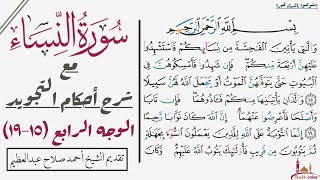 سُورَةُ النِّسَاء
مع
شرح أحكام التجويد
الوجه الرابع (١٥-١٩)
تقديم الشيخ أحمد صلاح عبدالعظيم
بِسْمِ ٱللَّهِ ٱلرَّحْمَٰنِ ٱلرَّحِيمِ
وَٱلَّٰتِى يَأْتِينَ ٱلْفَٰحِشَةَ مِن نِّسَآئِكُمْ فَٱسْتَشْهِدُوا۟
عَلَيْهِنَّ أَرْبَعَةً مِّنكُمْ فَإِن شَهِدُوا۟ فَأَمْسِكُوهُنَّ
فِى ٱلْبُيُوتِ حَتَّىٰ يَتَوَفَّىٰهُنَّ ٱلْمَوْتُ أَوْ يَجْعَلَ ٱللَّهُ لَهُنَّ سَبِيلًا
وَٱلَّذَانِ يَأْتِيَٰنِهَا مِنكُمْ فَـَٔاذُوهُمَا فَإِن تَابَا
وَأَصْلَحَا فَأَعْرِضُوا۟ عَنْهُمَآ إِنَّ ٱللَّهَ كَانَ تَوَّابًا رَّحِيمًا
إِنَّمَا ٱلتَّوْبَةُ عَلَى ٱللَّهِ لِلَّذِينَ يَعْمَلُونَ ٱلسُّوٓءَ بِجَهَٰلَةٍ
ثُمَّ يَتُوبُونَ مِن قَرِيبٍ فَأُو۟لَٰٓئِكَ يَتُوبُ ٱللَّهُ عَلَيْهِمْ وَكَانَ